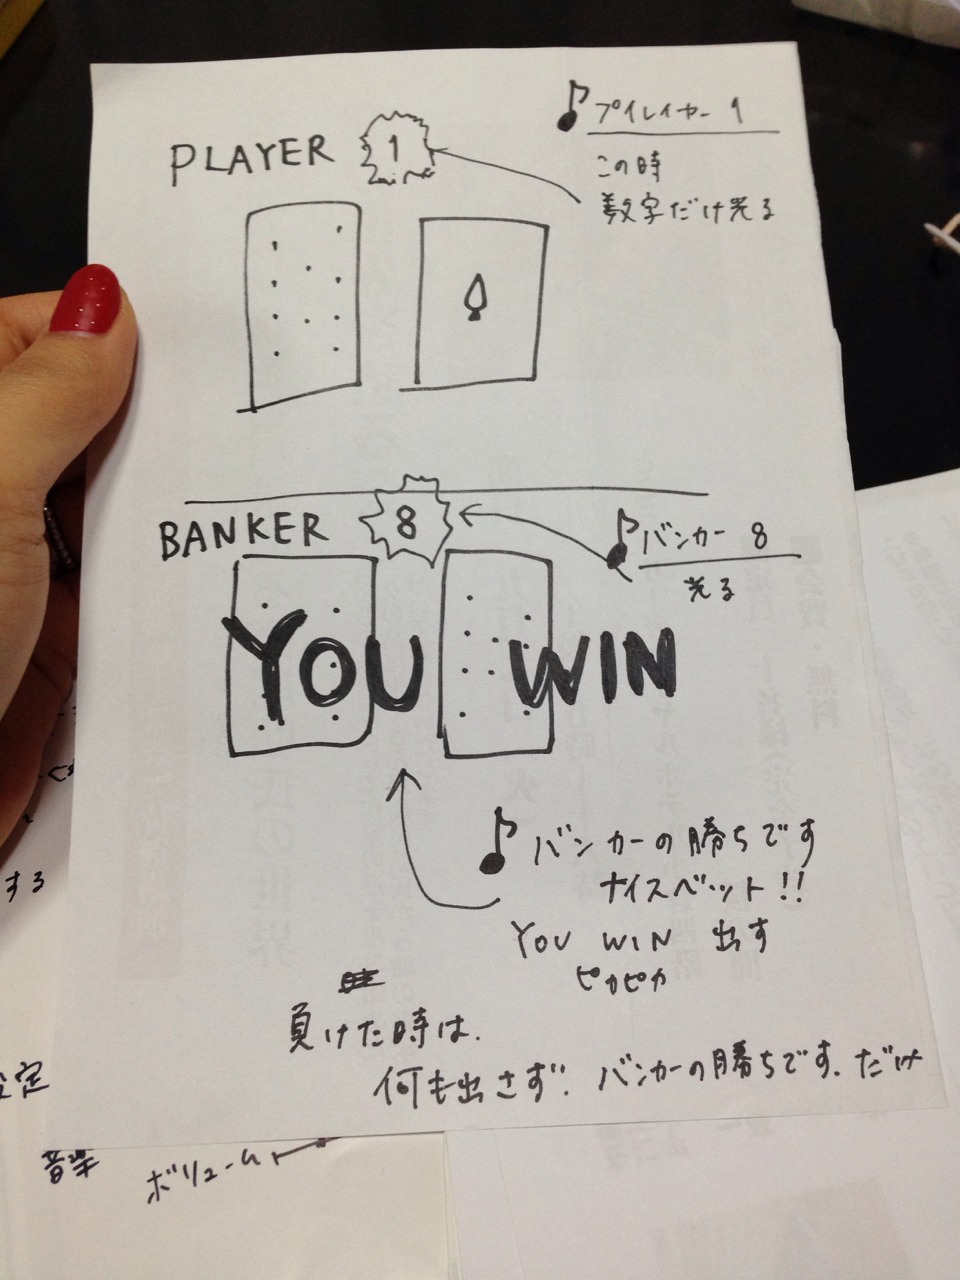 PLAYER 1
♪ プイレイヤー 1
この時
数字だけ光る
BANKER 8
♪ バンカー 8
光る
YOU WIN
♪ バンカーの勝ちです
ナイスベット!!
YOU WIN 出す
ピカピカ
負けた時は.
何も出さず. バンカーの勝ちです. だけ
する
設定
音楽
ボリューム